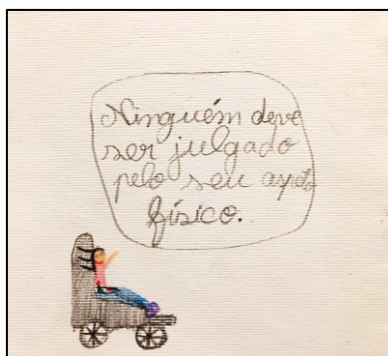 Ninguém deve
ser julgado
pelo seu
físico.